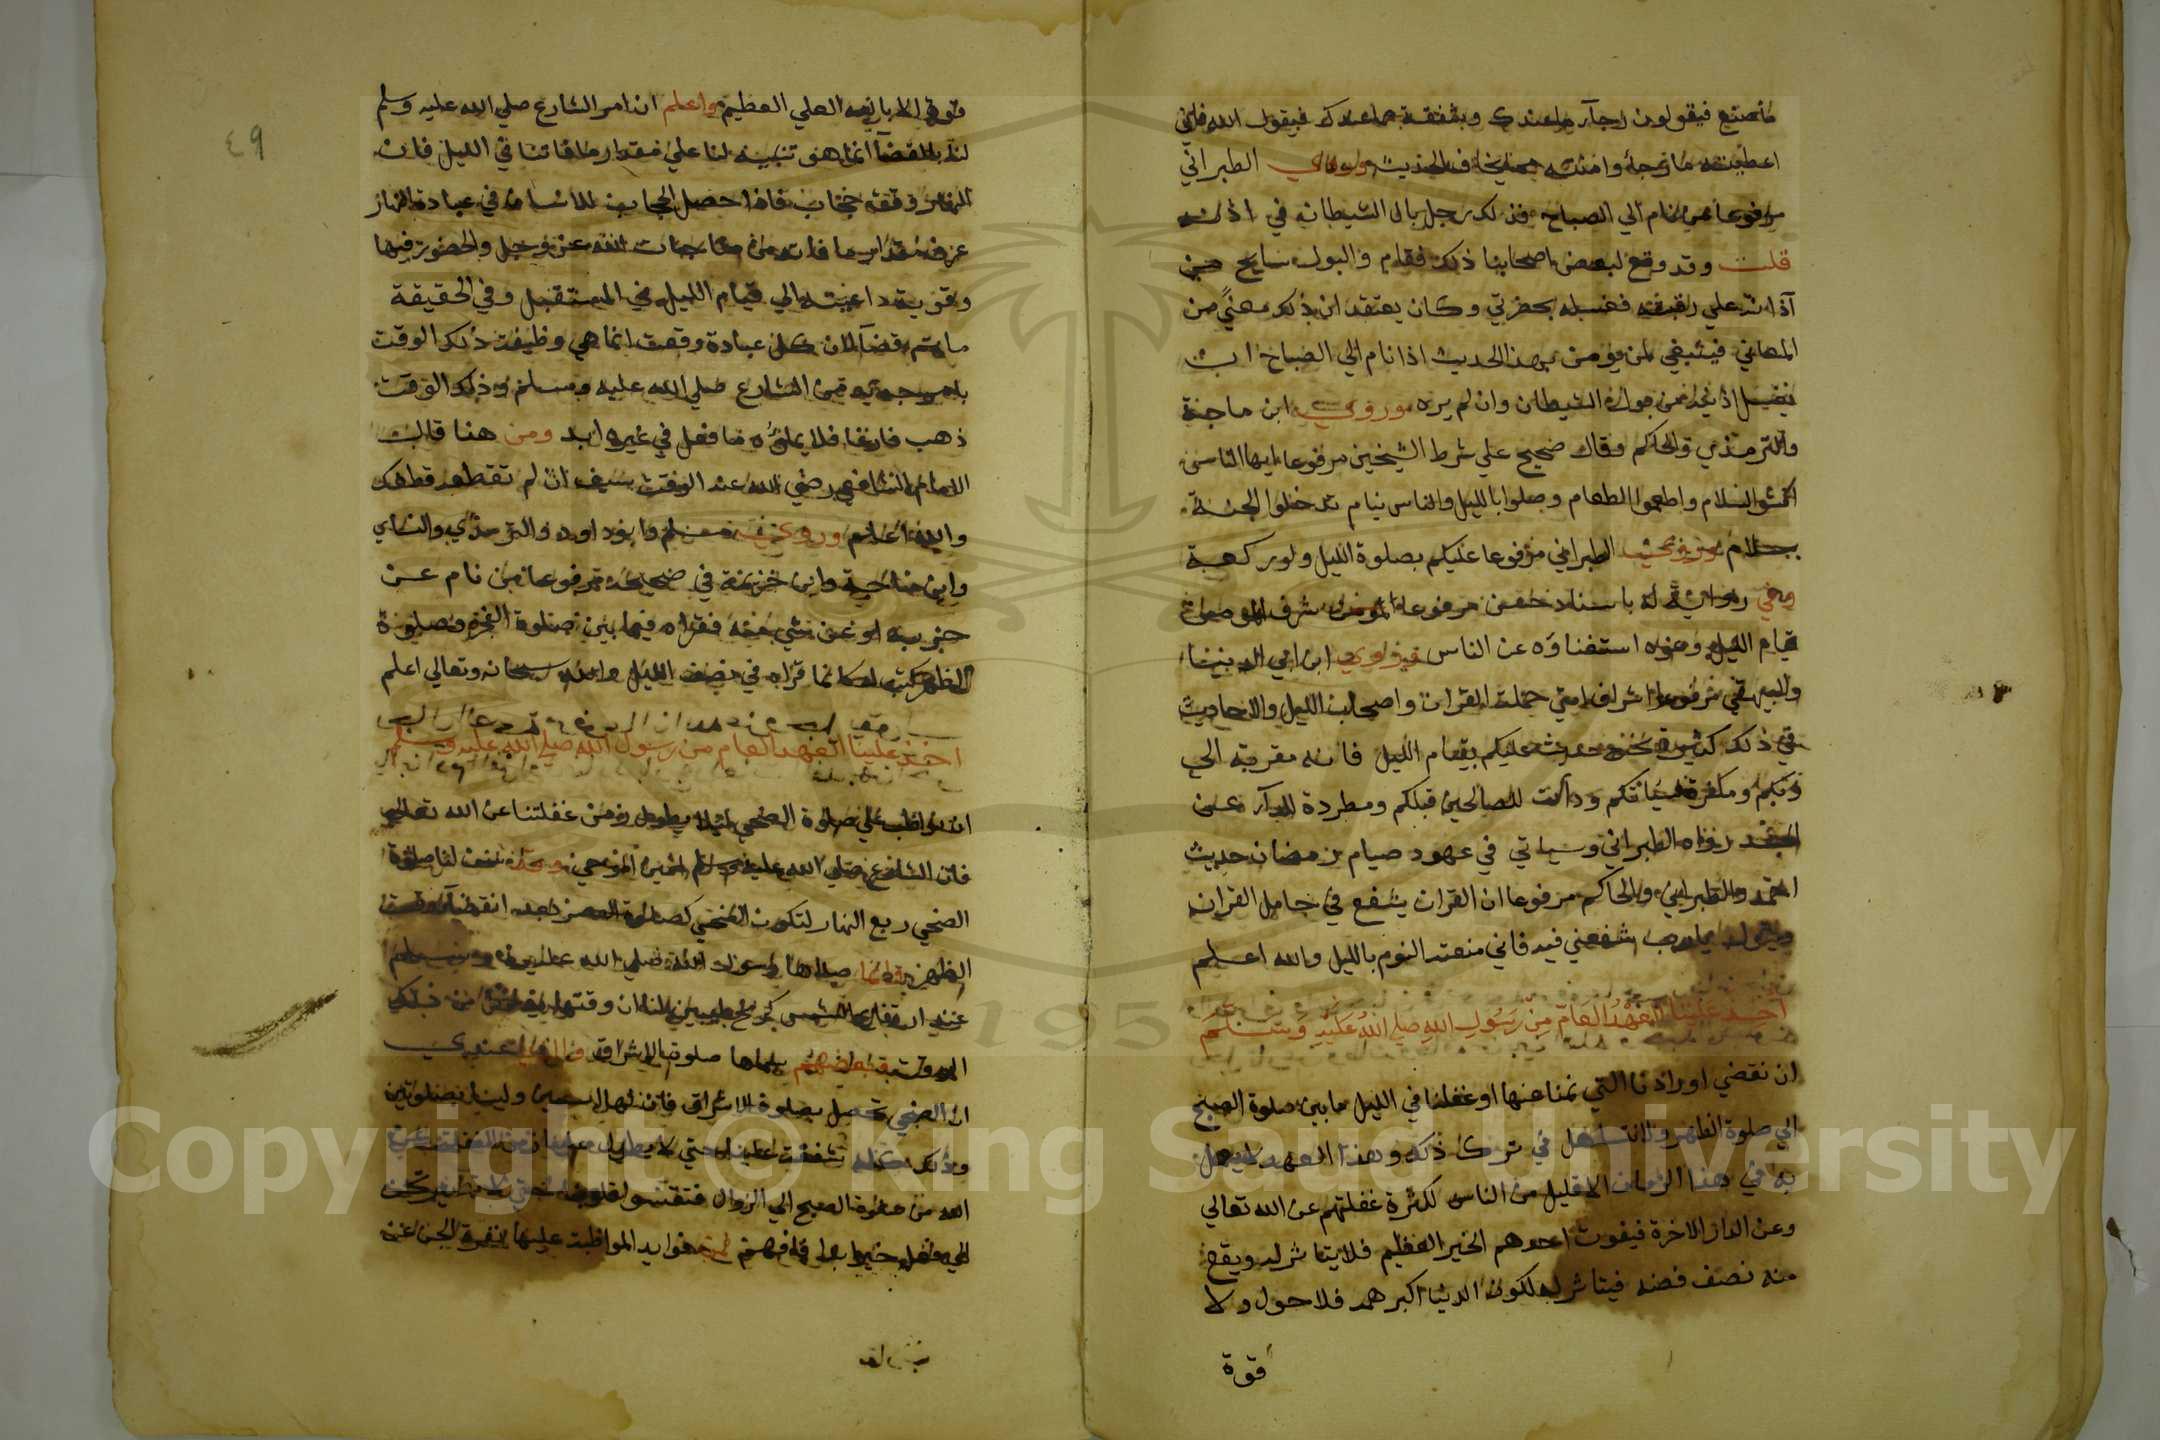 ما صنع فيقولون رجآء ما عندك وشفقة مما عندك فيقول الله فاني
اعطيته ما رجا وامنته مما يخاف الحديث وروي الطبراني
مرفوعا من نام الي الصباح فذلك رجل بال الشيطان في اذنه
قلت وقد وقع لبعض اصحابنا ذلك فقام والبول سايح من
آذانه علي رقبته فغسله بحضرتي وكان يعتقد ان ذلك معنًي من
المعاني فينبغي لمن يومن بهذا الحديث اذا نام الي الصباح ان
يغسل اذنه من بول الشيطان وان لم يره وروي ابن ماجة
والترمذي والحاكم وقال صحيح علي شرط الشيخين مرفوعا ايها الناس
افشوا السلام واطعموا الطعام وصلوا بالليل والناس نيام تدخلوا الجنة
بسلام وروي الطبراني مرفوعا عليكم بصلوة الليل ولو ركعة
وفي رواية له باسناد حسن مرفوعا شرف المومن
قيام الليل وعزه استغناؤه عن الناس وروي ابن ابي الدنيا
والبيهقي مرفوعا اشراف امتي حملة القران واصحاب الليل والاحاديث
في ذلك كثيرة نحو حديث عليكم بقيام الليل فانه مقربة الي
ربكم ومكفرة لسيئاتكم ودأب الصالحين قبلكم ومطردة للدآء عن
الجسد رواه الطبراني وسياتي في عهود صيام رمضان حديث
احمد والطبراني والحاكم مرفوعا ان القران يشفع في حامل القران
ويقول يارب شفعني فيه فاني منعته النوم بالليل والله اعلم
اخذ علينا العهد العام من رسول الله صلي الله عليه وسلم
ان نقضي اورادنا التي نمنا عنها او غفلنا في الليل ما بين صلوة الصبح
الي صلوة الظهر ولا نتساهل في ترك ذلك وهذا العهد لا يعمل
به في هذا الزمان الا قليل من الناس لكثرة غفلتهم عن الله تعالي
وعن الدار الاخرة فيفوت احدهم الخير العظيم فلا يتاثر له ويقع
منه نصف فضه فيتاثر له لكون الدنيا اكبر همه فلا حول ولا
قوة
٤٩
قوة الا بالله العلي العظيم واعلم ان امر الشارع صلي الله عليه وسلم
لنا بالقضآ انما هو تنبيه لنا علي مقدار ما فاتنا في الليل فان
النهار وقته حجاب فاذا حصل الحجاب للانسان في عبادة النهار
عرف مقدار ما فاته من مناجات الله عز وجل والحضور فيها
وتقوية داعيته الي قيام الليل في المستقبل وفي الحقيقة
ما ثم قضآ لان كل عبادة وقعت انما هي وظيفة ذلك الوقت
بامر جديد من الشارع صلي الله عليه وسلم وذلك الوقت
ذهب فارغا فلا يملؤه ما فعل في غيره ابد ومن هنا قال
الامام الشافعي رضي الله عنه الوقت سيف ان لم تقطعه قطعك
والله اعلم وروي مسلم وابوداود والترمذي والنساي
وابن ماجة وابن خزيمة في صحيحه مرفوعا من نام عن
حزبه او عن شي منه فقراه فيما بين صلوة الفجر وصلوة
الظهر كتب له كانما قراه في نصف الليل والله سبحانه وتعالي اعلم
اخذ علينا العهد العام من رسول الله صلي الله عليه وسلم
ان نواظب علي صلوة الضحي لئلا يطول زمن غفلتنا عن الله تعالي
فان الشارع صلي الله عليه وسلم امين الوحي وقد سن لنا صلوة
الضحي ربع النهار لتكون الضحي كصلوة العصر بعد انقضآ وقت
الظهر وانما صلاها رسول الله صلي الله عليه وسلم
عند ارتفاع الشمس كرمح ليبين لنا ان وقتها يدخل من ذلك
الوقت وبعضهم سماها صلوة الاشراق والذي عندي
ان الضحي تحصل بصلوة الاشراق فان لها اسمين وليسا بصلوتين
وذلك كله شفقة علينا حتي لا يطول زمان الغفلة عن
الله من صلوة الصبح الي الزوال فتقسو قلوبنا حتي لا نصير تحن
الي فعل خير فافهم ومن فوايد المواظبة عليها نفرة الجن عن